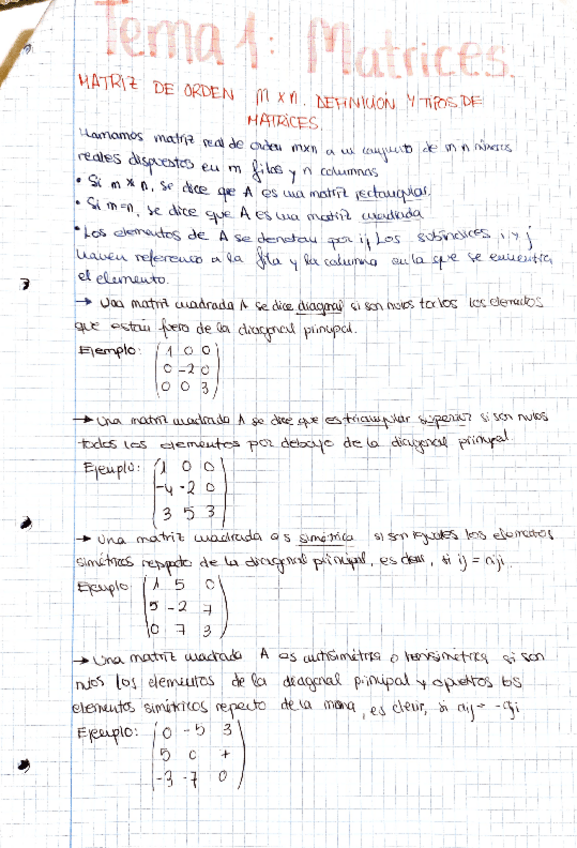 Tema 1: Matrices.
MATRIZ DE ORDEN m x n. DEFINICIÓN Y TIPOS DE
MATRICES.
Llamamos matriz real de orden mxn a un conjunto de m n números
reales dispuestos en m filas y n columnas
• Si m ≠ n, se dice que A es una matriz rectangular.
• Si m=n, se dice que A es una matriz cuadrada
• Los elementos de A se denotan por ij Los subíndices i, y j
hacen referencia a la fila y la columna en la que se encuentra
el elemento.
→ Una matriz cuadrada A se dice diagonal si son nulos todos los elementos
que están fuera de la diagonal principal.
Ejemplo: 1 0 0
0 -2 0
0 0 3
→ Una matriz cuadrada A se dice que es triangular superior si son nulos
todos los elementos por debajo de la diagonal principal.
Ejemplo: 1 0 0
-4 -2 0
3 5 3
→ Una matriz cuadrada es simétrica si son iguales los elementos
simétricos respecto de la diagonal principal, es decir, si ij = aji.
Ejemplo 1 5 0
5 -2 7
0 7 3
→ Una matriz cuadrada A es antisimétrica o hemisimétrica si son
nulos los elementos de la diagonal principal y opuestos los
elementos simétricos respecto de la misma, es decir, si aij = -aji
Ejemplo: 0 -5 3
5 0 +
-3 -7 0